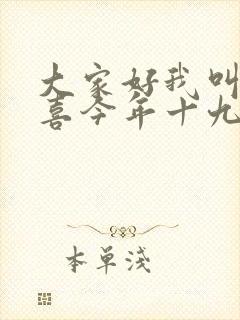 大家好我叫
喜今年十九
本单浅